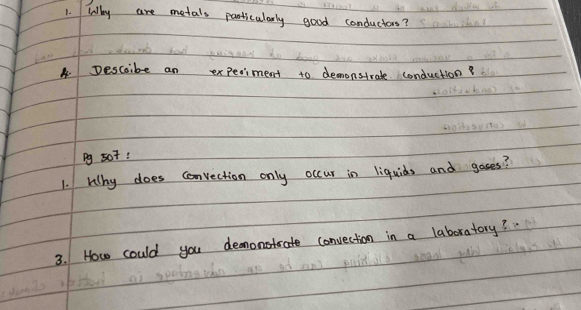 1. Why are metals particularly good conductors?
4. Describe an experiment to demonstrate conduction?
Pg 307:
1. Why does convection only occur in liquids and gases?
3. How could you demonstrate convection in a laboratory?